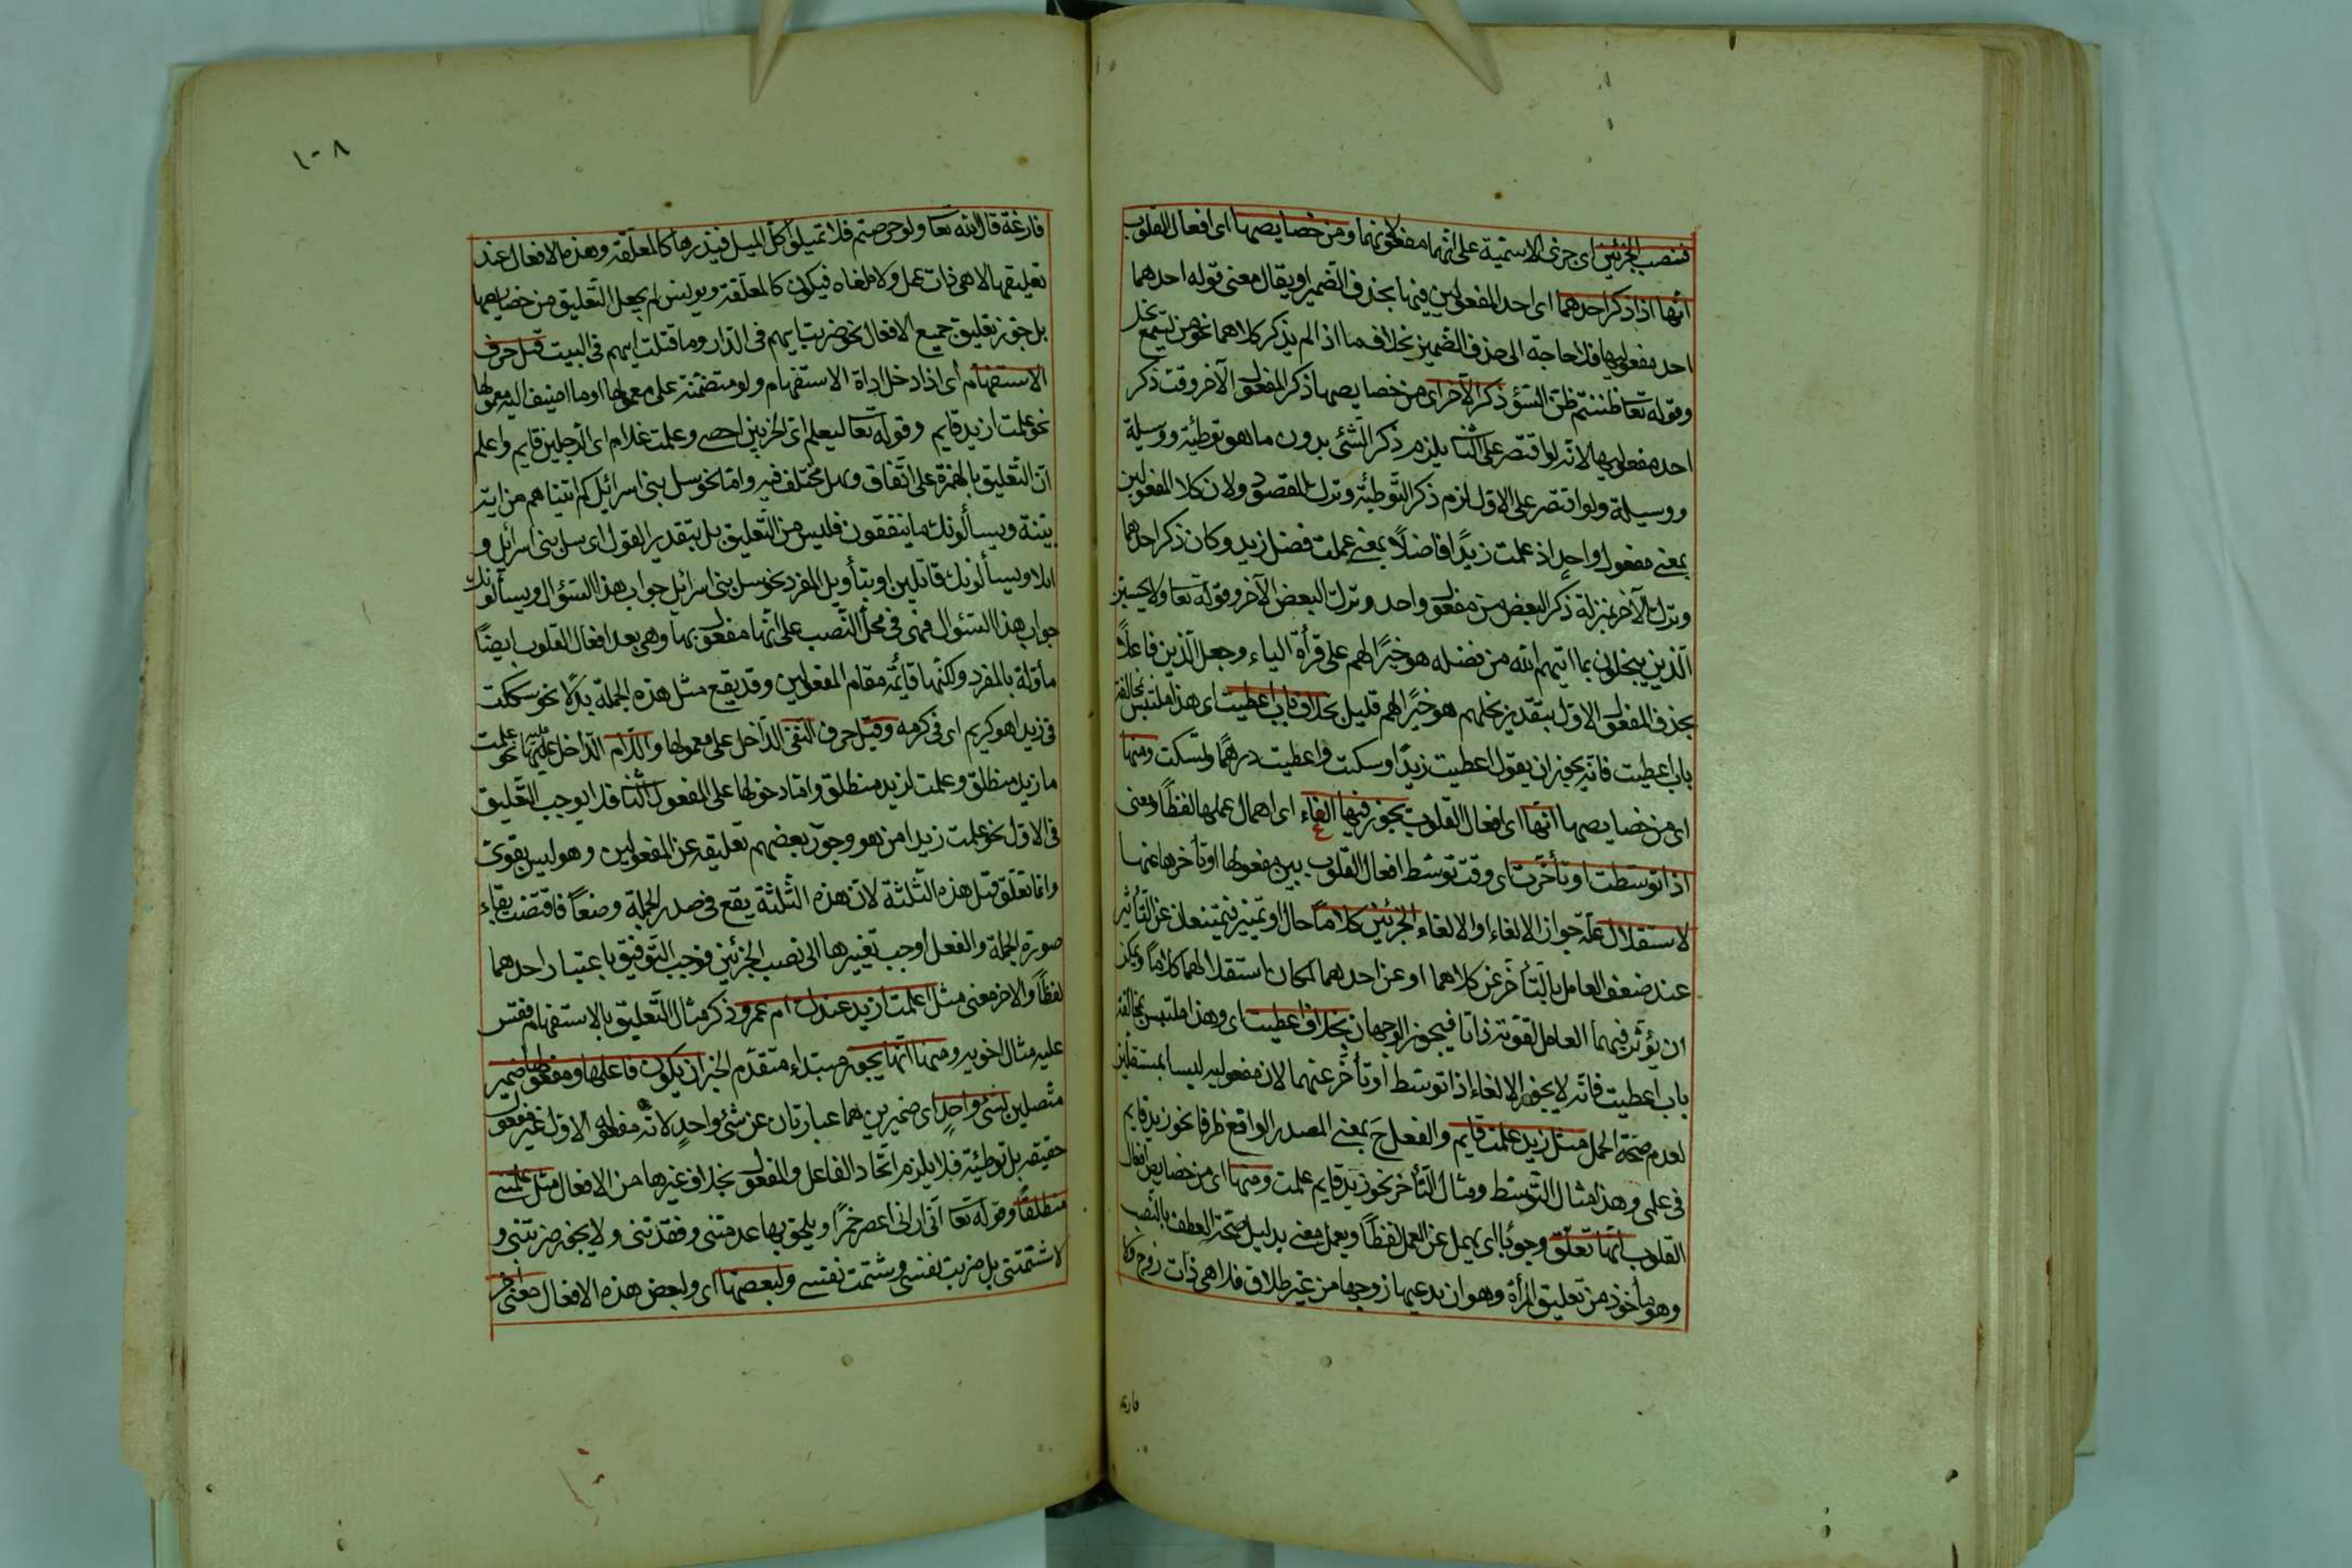 فتنصب الجزئين اى جزئى الاسمية على انهما مفعولانها ومن خصايصها اى افعال القلوب
انها اذا ذكر احدهما اى احد المفعولين فيها بحذف الضمير او يقال معنى قوله احدهما
احد مفعوليها فلا حاجة الى حذف الضمير بخلاف ما اذا لم يذكر كلاهما نحو من يسمع يخل
وقوله تعا ظننتم ظن السوء ذكر الآخر اى من خصايصها ذكر المفعول الآخر وقت ذكر
احد مفعوليها لانه لو اقتصر على الثا يلزم ذكر الشئ بدون ما هو توطئة ووسيلة
ووسيلة ولو اقتصر على الاول لزم ذكر التوطئة وترك المقصود ولان كلا المفعولين
بمعنى مفعول واحد اذ علمت زيدًا فاضلًا بمعنى علمت فضل زيد وكان ذكر احدهما
وترك الآخر بمنزلة ذكر البعض من مفعول واحد وترك البعض الآخر وقوله تعا ولا يحسبن
الذين يبخلون بما اتيهم الله من فضله هو خيرًا لهم على قرأة الياء وجعل الذين فاعلًا
بحذف المفعول الاول بتقدير بخلهم هو خيرًا لهم قليل بخلاف باب اعطيت اى هذا ملتبس بمخالفة
باب اعطيت فانه يجوز ان يقول اعطيت زيدًا وسكت واعطيت درهمًا وتسكت ومنها
اى من خصايصها انها اى افعال القلوب يجوز فيها الغاء اى اهمال عملها لفظًا ومعنى
اذا توسطت او تأخرت اى وقت توسط افعال القلوب بين مفعولها او تأخرها عنها
لاستقلال علة جواز الالغاء او الالغاء الجزئين كلامًا حال او تمييز فيمتنعان عن التأثير
عند ضعف العامل بالتأخر عن كلاهما او عن احدهما لمكان استقلالهما كلامًا ويمكن
ان يؤثر فيهما العامل لقوته ذاتا فيجوز الوجهان بخلاف اعطيت اى وهذا ملتبس بمخالفة
باب اعطيت فانه لا يجوز الالغاء اذا توسط او تأخر عنهما لان مفعوليه ليسا بمستقلين
لعدم صحة الحمل مثل زيد علمت قايم والفعل ح بمعنى المصدر الواقع ظرفا نحو زيد قايم
فى علمى وهذا مثال التوسط ومثال التأخر نحو زيد قايم علمت ومنها اى من خصايص افعال
القلوب انها تعلق وجوبًا اى يهمل عن العمل لفظًا ويعمل معنى بدليل صحة العطف بالنصب
وهو مأخوذ من تعليق المرأة وهو ان يدعيها زوجها من غير طلاق فلا هى ذات زوج ولا
فارغة
١٠٨
فارغة قال الله تعا ولو حرصتم فلا تميلوا كل الميل فتذرها كالمعلقة وهذه الافعال عند
تعليقها لا هى ذات عمل ولا ملغاه فيكون كالمعلقة ويونس لم يجعل التعليق من خصايصها
بل جوز تعليق جميع الافعال نحو ضربت ايهم فى الدار وما قتلت ايهم فى البيت قبل حرف
الاستفهام اى اذا دخل اداة الاستفهام ولو متضمنة على معمولها او ما اضيف اليه معمولها
نحو علمت ازيد قايم وقوله تعا ليعلم اى الحزبين احصى وعلمت غلام اى الرجلين قايم واعلم
ان التعليق بالهمزة على اتفاق وهل مختلف فيه واما نحو سل بنى اسرائيل كم اتيناهم من اية
بينة ويسألونك ما ينفقون فليس من التعليق بل بتقدير القول اى سل بنى اسرائل و
ويسألونك قائلين او بتأويل المفرد نحو سل بنى اسرائيل جواب هذا السئوال ويسألونك
جواب هذا السئوال فهى فى محل النصب على انها مفعول بها وهى بعد افعال القلوب ايضًا
مأولة بالمفرد ولكنها قائمة مقام المفعولين وقد يقع مثل هذه الجملة بدلًا نحو شككت
فى زيد اهو كريم اى فى كرمه وقبل حرف النفى الداخل على معمولها واللام الداخل عليها نحو علمت
ما زيد منطلق وعلمت لزيد منطلق واما دخولها على المفعول الثا فلا يوجب التعليق
فى الاول نحو علمت زيدا من هو وجوز بعضهم تعليقه عن المفعولين وهو ليس بقوى
وانما تعلق قبل هذه الثلثة لان هذه الثلثة يقع فى صدر الجملة وضعًا فاقتضت بقاء
صورة الجملة والفعل اوجب تغييرها الى نصب الجزئين فوجب التوفيق باعتبار احدهما
لفظًا والاخر معنى مثل علمت ازيد عندك ام عمرو ذكر مثال التعليق بالاستفهام فقس
عليه مثال اخويه ومنها انها يجوز مبتداء متقدم الخبر ان يكون فاعلها ومفعولها ضمير
متصلين لشئ واحد اى ضميرين هما عبارتان عن شئ واحد لانه مفعوله الاول غير مفعول
حقيقة بل توطئة فلا يلزم اتحاد الفاعل والمفعول بخلاف غيرها من الافعال مثل علمتنى
منطلقًا وقوله تعا انى ارانى اعصر خمرًا ويلحق بها عدمتنى وفقدتنى ولا يجوز ضربتنى و
لا شتمتنى بل ضربت نفسى وشتمت نفسى ولبعضها اى ولبعض هذه الافعال معنى آخر